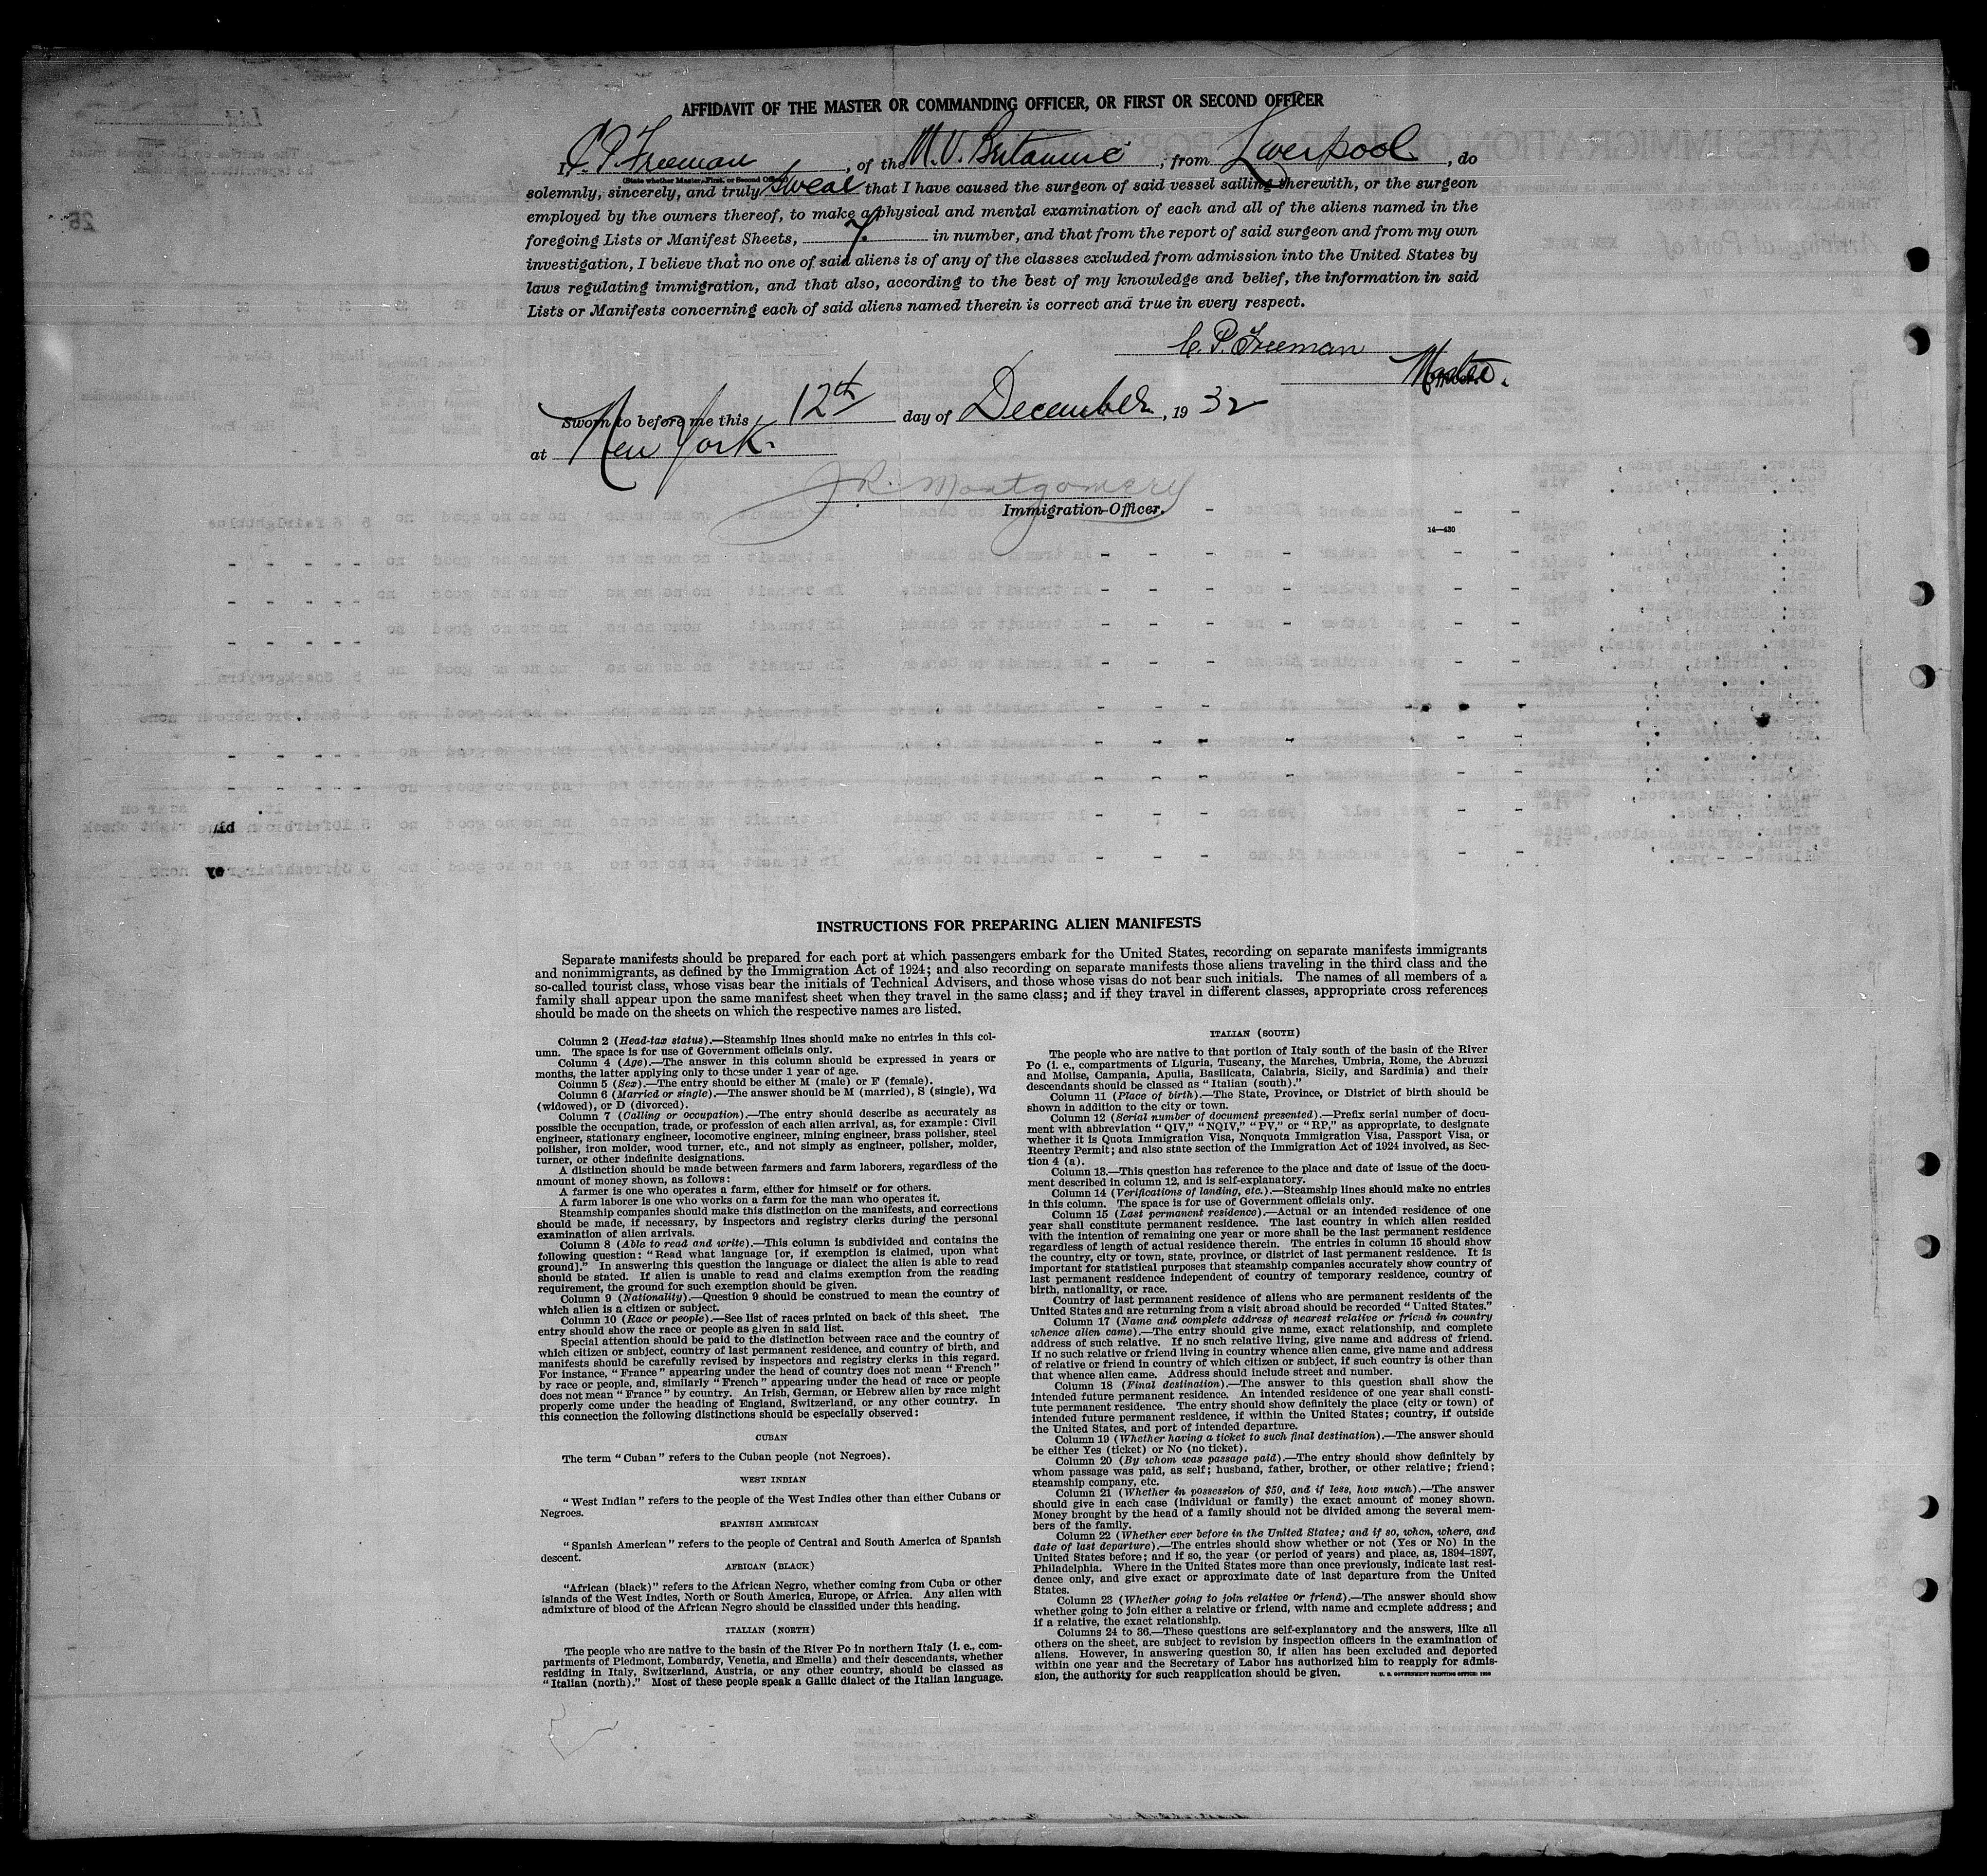 AFFIDAVIT OF THE MASTER OR COMMANDING OFFICER, OR FIRST OR SECOND OFFICER
I, C. P. Freeman, of the M. V. Britannic, from Liverpool, do
(State whether Master, First, or Second Officer)
solemnly, sincerely, and truly swear that I have caused the surgeon of said vessel sailing therewith, or the surgeon
employed by the owners thereof, to make a physical and mental examination of each and all of the aliens named in the
foregoing Lists or Manifest Sheets, 7. in number, and that from the report of said surgeon and from my own
investigation, I believe that no one of said aliens is of any of the classes excluded from admission into the United States by
laws regulating immigration, and that also, according to the best of my knowledge and belief, the information in said
Lists or Manifests concerning each of said aliens named therein is correct and true in every respect.
C. P. Freeman
Master.
Officer.
Sworn to before me this 12th day of December, 1932
at New York.
J. R. Montgomery
Immigration Officer.
14—430
INSTRUCTIONS FOR PREPARING ALIEN MANIFESTS
Separate manifests should be prepared for each port at which passengers embark for the United States, recording on separate manifests immigrants
and nonimmigrants, as defined by the Immigration Act of 1924; and also recording on separate manifests those aliens traveling in the third class and the
so-called tourist class, whose visas bear the initials of Technical Advisers, and those whose visas do not bear such initials. The names of all members of a
family shall appear upon the same manifest sheet when they travel in the same class; and if they travel in different classes, appropriate cross references
should be made on the sheets on which the respective names are listed.
Column 2 (Head-tax status).—Steamship lines should make no entries in this col-
umn. The space is for use of Government officials only.
Column 4 (Age).—The answer in this column should be expressed in years or
months, the latter applying only to those under 1 year of age.
Column 5 (Sex).—The entry should be either M (male) or F (female).
Column 6 (Married or single).—The answer should be M (married), S (single), Wd
(widowed), or D (divorced).
Column 7 (Calling or occupation).—The entry should describe as accurately as
possible the occupation, trade, or profession of each alien arrival, as, for example: Civil
engineer, stationary engineer, locomotive engineer, mining engineer, brass polisher, steel
polisher, iron molder, wood turner, etc., and not simply as engineer, polisher, molder,
turner, or other indefinite designations.
A distinction should be made between farmers and farm laborers, regardless of the
amount of money shown, as follows:
A farmer is one who operates a farm, either for himself or for others.
A farm laborer is one who works on a farm for the man who operates it.
Steamship companies should make this distinction on the manifests, and corrections
should be made, if necessary, by inspectors and registry clerks during the personal
examination of alien arrivals.
Column 8 (Able to read and write).—This column is subdivided and contains the
following question: "Read what language [or, if exemption is claimed, upon what
ground]." In answering this question the language or dialect the alien is able to read
should be stated. If alien is unable to read and claims exemption from the reading
requirement, the ground for such exemption should be given.
Column 9 (Nationality).—Question 9 should be construed to mean the country of
which alien is a citizen or subject.
Column 10 (Race or people).—See list of races printed on back of this sheet. The
entry should show the race or people as given in said list.
Special attention should be paid to the distinction between race and the country of
which citizen or subject, country of last permanent residence, and country of birth, and
manifests should be carefully revised by inspectors and registry clerks in this regard.
For instance, "France" appearing under the head of country does not mean "French"
by race or people, and, similarly "French" appearing under the head of race or people
does not mean "France" by country. An Irish, German, or Hebrew alien by race might
properly come under the heading of England, Switzerland, or any other country. In
this connection the following distinctions should be especially observed:
CUBAN
The term "Cuban" refers to the Cuban people (not Negroes).
WEST INDIAN
"West Indian" refers to the people of the West Indies other than either Cubans or
Negroes.
SPANISH AMERICAN
"Spanish American" refers to the people of Central and South America of Spanish
descent.
AFRICAN (BLACK)
"African (black)" refers to the African Negro, whether coming from Cuba or other
islands of the West Indies, North or South America, Europe, or Africa. Any alien with
admixture of blood of the African Negro should be classified under this heading.
ITALIAN (NORTH)
The people who are native to the basin of the River Po in northern Italy (i. e., com-
partments of Piedmont, Lombardy, Venetia, and Emelia) and their descendants, whether
residing in Italy, Switzerland, Austria, or any other country, should be classed as
"Italian (north)." Most of these people speak a Gallic dialect of the Italian language.
ITALIAN (SOUTH)
The people who are native to that portion of Italy south of the basin of the River
Po (i. e., compartments of Liguria, Tuscany, the Marches, Umbria, Rome, the Abruzzi
and Molise, Campania, Apulia, Basilicata, Calabria, Sicily, and Sardinia) and their
descendants should be classed as "Italian (south)."
Column 11 (Place of birth).—The State, Province, or District of birth should be
shown in addition to the city or town.
Column 12 (Serial number of document presented).—Prefix serial number of docu-
ment with abbreviation "QIV," "NQIV," "PV," or "RP," as appropriate, to designate
whether it is Quota Immigration Visa, Nonquota Immigration Visa, Passport Visa, or
Reentry Permit; and also state section of the Immigration Act of 1924 involved, as Sec-
tion 4 (a).
Column 13.—This question has reference to the place and date of issue of the docu-
ment described in column 12, and is self-explanatory.
Column 14 (Verifications of landing, etc.).—Steamship lines should make no entries
in this column. The space is for use of Government officials only.
Column 15 (Last permanent residence).—Actual or an intended residence of one
year shall constitute permanent residence. The last country in which alien resided
with the intention of remaining one year or more shall be the last permanent residence
regardless of length of actual residence therein. The entries in column 15 should show
the country, city or town, state, province, or district of last permanent residence. It is
important for statistical purposes that steamship companies accurately show country of
last permanent residence independent of country of temporary residence, country of
birth, nationality, or race.
Country of last permanent residence of aliens who are permanent residents of the
United States and are returning from a visit abroad should be recorded "United States."
Column 17 (Name and complete address of nearest relative or friend in country
whence alien came).—The entry should give name, exact relationship, and complete
address of such relative. If no such relative living, give name and address of friend.
If no such relative or friend living in country whence alien came, give name and address
of relative or friend in country of which citizen or subject, if such country is other than
that whence alien came. Address should include street and number.
Column 18 (Final destination).—The answer to this question shall show the
intended future permanent residence. An intended residence of one year shall consti-
tute permanent residence. The entry should show definitely the place (city or town) of
intended future permanent residence, if within the United States; country, if outside
the United States, and port of intended departure.
Column 19 (Whether having a ticket to such final destination).—The answer should
be either Yes (ticket) or No (no ticket).
Column 20 (By whom was passage paid).—The entry should show definitely by
whom passage was paid, as self; husband, father, brother, or other relative; friend;
steamship company, etc.
Column 21 (Whether in possession of $50, and if less, how much).—The answer
should give in each case (individual or family) the exact amount of money shown.
Money brought by the head of a family should not be divided among the several mem-
bers of the family.
Column 22 (Whether ever before in the United States; and if so, when, where, and
date of last departure).—The entries should show whether or not (Yes or No) in the
United States before; and if so, the year (or period of years) and place, as, 1894–1897,
Philadelphia. Where in the United States more than once previously, indicate last resi-
dence only, and give exact or approximate date of last departure from the United
States.
Column 23 (Whether going to join relative or friend).—The answer should show
whether going to join either a relative or friend, with name and complete address; and
if a relative, the exact relationship.
Columns 24 to 36.—These questions are self-explanatory and the answers, like all
others on the sheet, are subject to revision by inspection officers in the examination of
aliens. However, in answering question 30, if alien has been excluded and deported
within one year and the Secretary of Labor has authorized him to reapply for admis-
sion, the authority for such reapplication should be given.